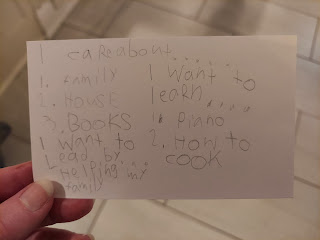 I care about......
1. family
2. HOUSE
3. BOOKS
I want to
Lead by...
Helping my
family
I want to
learn....
1. Piano
2. How to
cook